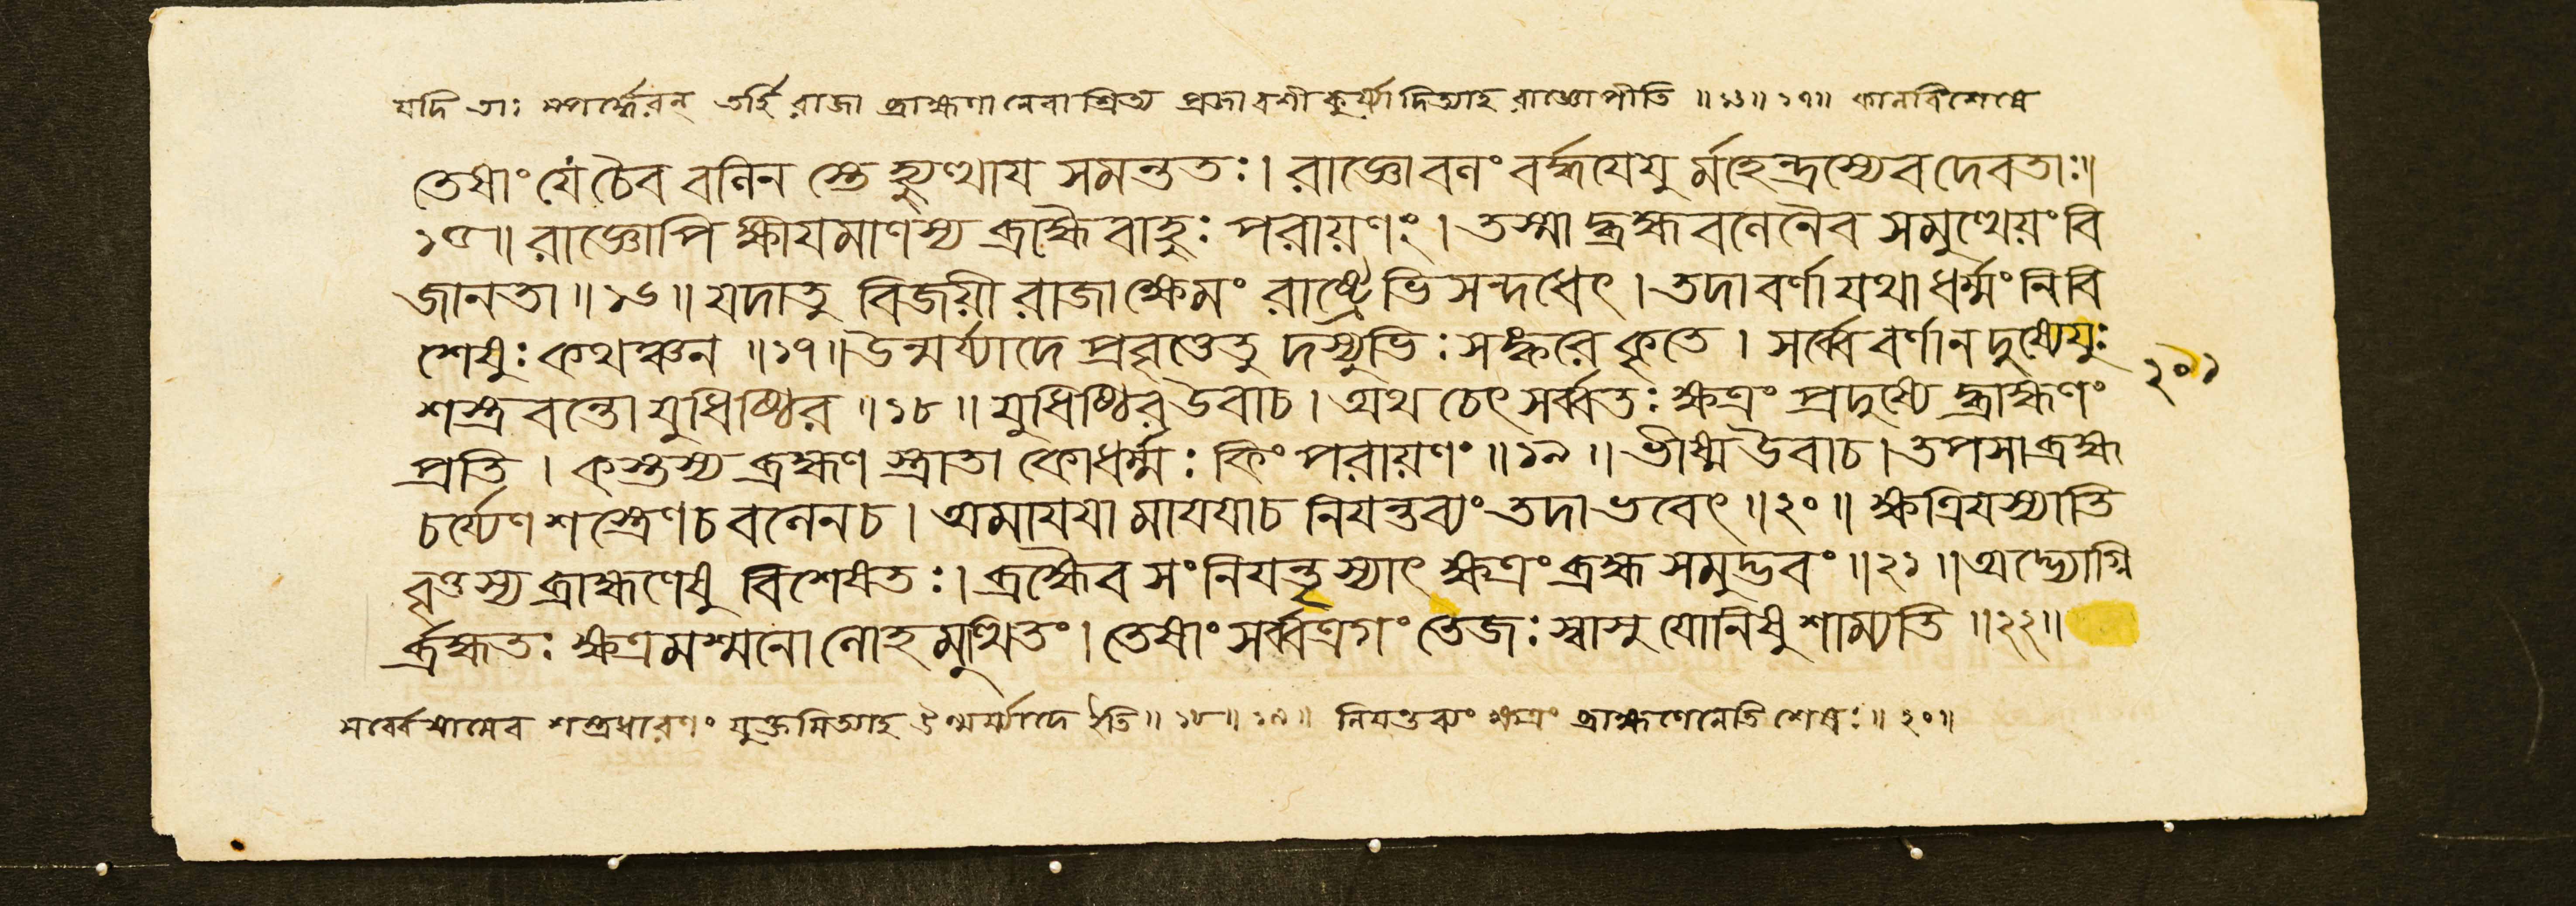 যদি তাঃ স্পর্দ্ধেরন্ তর্হি রাজা ব্রাহ্মণানেবাশ্রিত্য প্রজাবশীকুর্য্যাদিত্যাহ রাজ্ঞোপীতি ॥১৬॥১৭॥ কালবিশেষে
তেষাং যে চৈব বলিন স্তে হ্যুত্থায সমন্ততঃ। রাজ্ঞোবলং বর্দ্ধযেযু র্মহেন্দ্রস্যেব দেবতাঃ॥
১৫॥ রাজ্ঞোপি ক্ষীযমাণস্য ব্রাহ্মৈবাহুঃ পরায়ণং। তস্মা দ্ব্রহ্মবলেনৈব সমুত্থেয়ং বি
জানতা ॥১৬॥ যদাতু বিজয়ী রাজাক্ষেমং রাষ্ট্রেভিসন্দধেৎ। তদাবর্ণা যথাধর্ম্মং নিবি
শেষুঃ কথঞ্চন ॥১৭॥ উন্মর্য্যাদে প্রবৃত্তেতু দস্যুভিঃ সঙ্করে কৃতে। সর্ব্বে বর্ণান দুষ্যেযুঃ
শস্ত্রবন্তো যুধিষ্ঠির ॥১৮॥ যুধিষ্ঠির উবাচ। অথ চেৎ সর্ব্বতঃ ক্ষত্রং প্রদুষ্যে দ্ব্রাহ্মণং
২০১
প্রতি। কস্তস্য ব্রহ্মণ স্ত্রাতা কোধর্ম্মঃ কিং পরায়ণং ॥১৯॥ ভীষ্ম উবাচ। তপসা ব্রহ্ম
চর্য্যেণ শস্ত্রেণচ বলেনচ। অমাযযা মাযযাচ নিযন্তব্যং তদাভবেৎ ॥২০॥ ক্ষত্রিযস্যাতি
বৃত্তস্য ব্রাহ্মণেষু বিশেষতঃ। ব্রহ্মৈব সংনিযন্তৃস্যাৎ ক্ষত্রং ব্রহ্ম সমুদ্ভবং ॥২১॥ অদ্ভ্যোগ্নি
র্ব্রহ্মতঃ ক্ষত্রমশ্মনো লোহমুত্থিতং। তেষাং সর্ব্বত্রগং তেজঃ স্বাসু যোনিষু শাম্যতি ॥২২॥
সর্ব্বেষামেব শস্ত্রধারণং যুক্তমিত্যাহ উন্মর্য্যাদে ইতি ॥১৮॥১৯॥ নিযন্তব্যং ক্ষত্রং ব্রাহ্মণেনেতি শেষঃ ॥২০॥